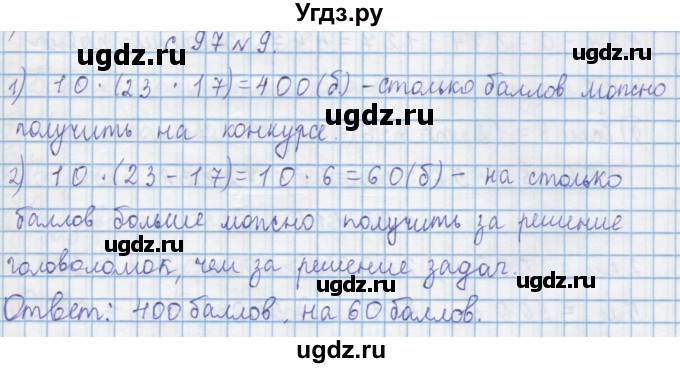 Угдз.ру
с. 97 №9.
1) 10 · (23 · 17) = 400 (б) - столько баллов можно
получить на конкурсе.
2) 10 · (23 - 17) = 10 · 6 = 60 (б) - на столько
баллов больше можно получить за решение
головоломок, чем за решение задач.
Ответ: 400 баллов, на 60 баллов.
ugdz.ru
ugdz.ru
ugdz.ru
ugdz.ru
ugdz.ru
ugdz.ru
ugdz.ru
ugdz.ru
ugdz.ru